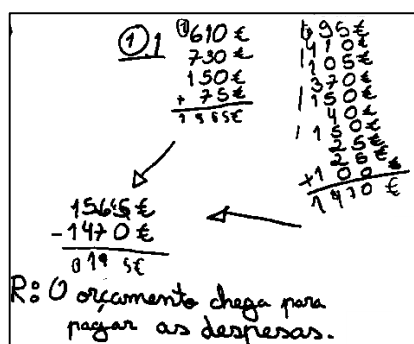 1.1
610 €
730 €
150 €
+ 75 €
1565 €
95 €
410 €
105 €
370 €
150 €
40 €
150 €
25 €
25 €
+100 €
1470 €
1565 €
-1470 €
0195 €
R: O orçamento chega para
pagar as despesas.